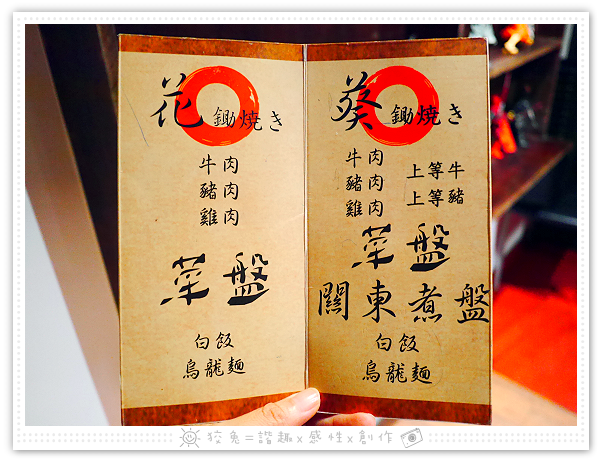 花 鋤焼き
牛肉
豬肉
雞肉
菜盤
白飯
烏龍麵
葵 鋤焼き
牛肉
豬肉
雞肉
上等牛
上等豬
菜盤
關東煮盤
白飯
烏龍麵
狡兔=諧趣x感性x創作